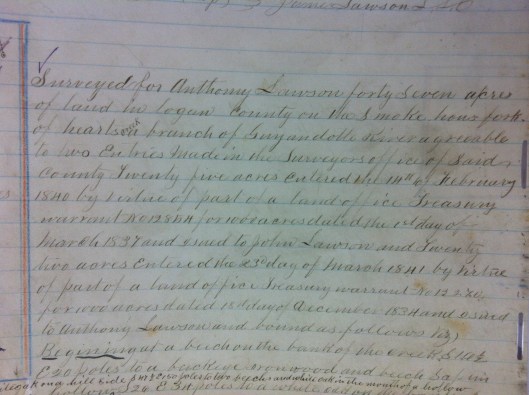 by James Lawson
Surveyed for Anthony Lawson forty seven acres
of land in logan county on the Smoke hous fork
of hearts branch of Guyandotte River agreeable
to two Entries Made in the Surveyors office of Said
County Twenty five acres Entered the 14th of February
1840 by virtue of part of a land office Treasury
warrant No for 1000 acres dated the 1st day of
March 1837 and isued to John Lawson and Twenty
two acres Entered the 23d day of March 1841 by virtue
of part of a land office Treasury warrant No
for 1000 acres dated 18d day of December 1834 and issued
to Anthony Lawson and bound as follows viz)
Begining at a beech on the bank of the creek S
E 20 poles to a buckeye ironwood and beech Saplin
on a hill side poles to two beeches and white oak in the mouth of a hollow
E 34 poles to a white